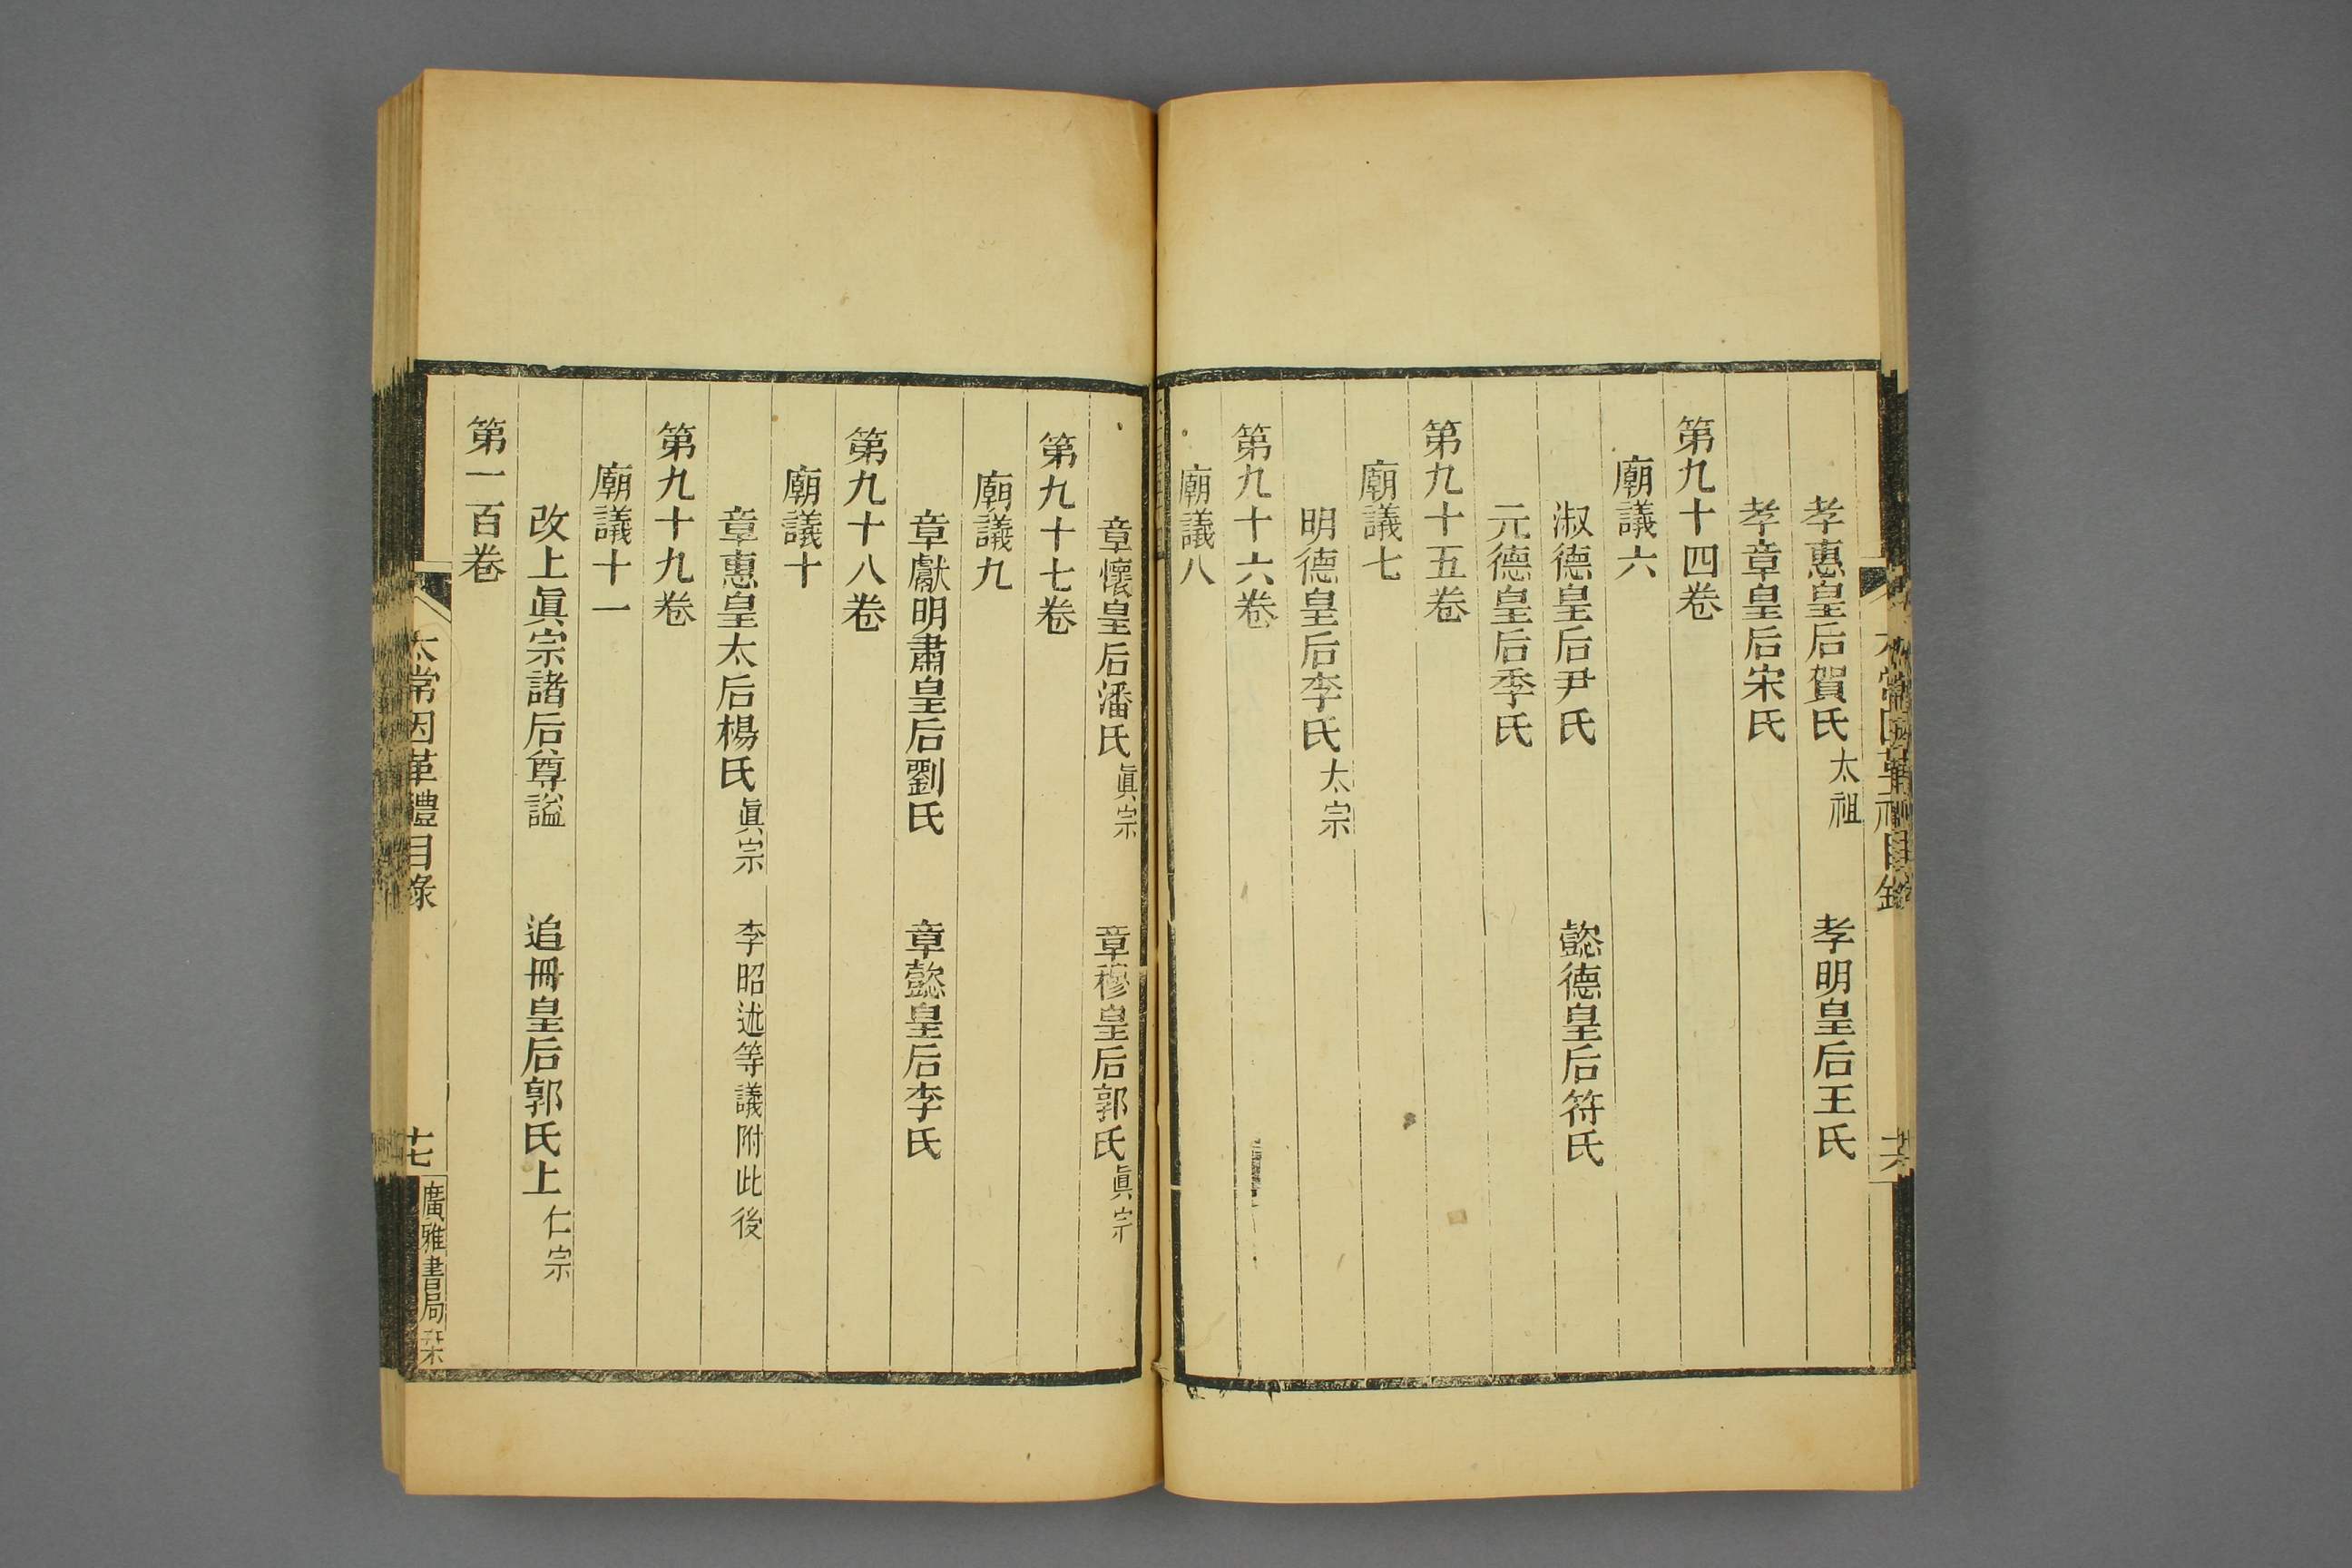 孝惠皇后賀氏太祖　孝明皇后王氏
孝章皇后宋氏
第九十四卷
廟議六
淑德皇后尹氏　懿德皇后符氏
元德皇后季氏
第九十五卷
廟議七
明德皇后李氏太宗
第九十六卷
廟議八
章懷皇后潘氏眞宗　章穆皇后郭氏眞宗
第九十七卷
廟議九
章獻明肅皇后劉氏　章懿皇后李氏
第九十八卷
廟議十
章惠皇太后楊氏眞宗　李昭述等議附此後
第九十九卷
廟議十一
改上眞宗諸后尊謚　追冊皇后郭氏上仁宗
第一百卷
太常因革禮目錄
廣雅書局栞